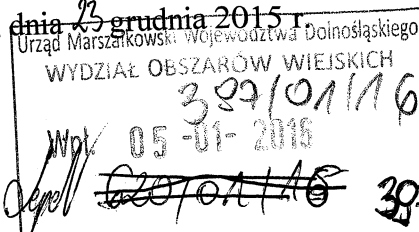 dnia 23 grudnia 2015 r.
Urząd Marszałkowski Województwa Dolnośląskiego
WYDZIAŁ OBSZARÓW WIEJSKICH
387/01/16
Wpł. 05 -01- 2016
620/01/16 39.